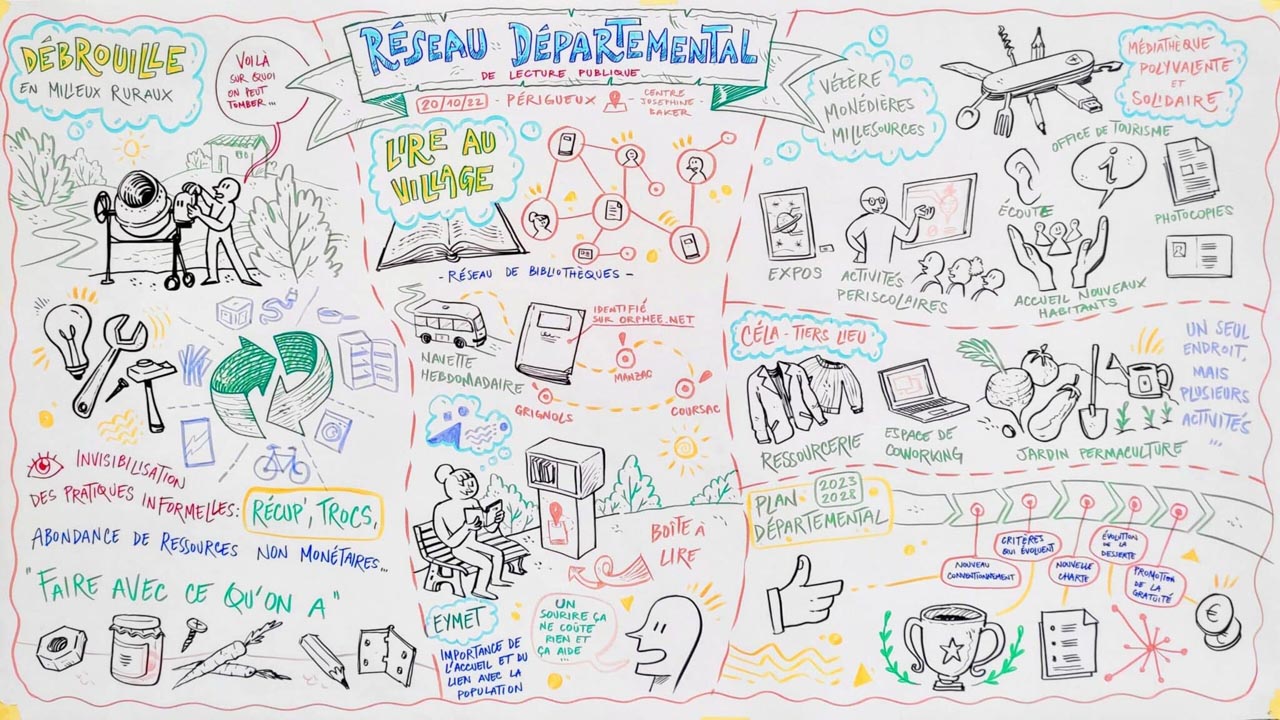 DÉBROUILLE
EN MILIEUX RURAUX
VOILÀ
SUR QUOI
ON PEUT
TOMBER...
INVISIBILISATION
DES PRATIQUES INFORMELLES:
RÉCUP', TROCS,
ABONDANCE DE RESSOURCES NON MONÉTAIRES...
"FAIRE AVEC CE QU'ON A"
RÉSEAU DÉPARTEMENTAL
DE LECTURE PUBLIQUE
20/10/22 - PÉRIGUEUX
CENTRE
JOSÉPHINE
BAKER
LIRE AU
VILLAGE
- RÉSEAU DE BIBLIOTHÈQUES -
NAVETTE
HEBDOMADAIRE
IDENTIFIÉ
SUR ORPHEE.NET
MANZAC
GRIGNOLS
COURSAC
BOÎTE À
LIRE
EYMET
IMPORTANCE DE
L'ACCUEIL ET DU
LIEN AVEC LA
POPULATION
UN
SOURIRE ÇA
NE COÛTE
RIEN ET
ÇA AIDE...
VÉZÈRE
MONÉDIÈRES
MILLESOURCES
MÉDIATHÈQUE
POLYVALENTE
ET
SOLIDAIRE
OFFICE DE TOURISME
i
ÉCOUTE
PHOTOCOPIES
EXPOS
ACTIVITÉS
PERISCOLAIRES
ACCUEIL NOUVEAUX
HABITANTS
CÉLA - TIERS LIEU
RESSOURCERIE
ESPACE DE
COWORKING
JARDIN PERMACULTURE
UN SEUL
ENDROIT,
MAIS
PLUSIEURS
ACTIVITÉS
...
PLAN
DÉPARTEMENTAL
2023
2028
NOUVEAU
CONVENTIONNEMENT
CRITÈRES
QUI ÉVOLUENT
NOUVELLE
CHARTE
ÉVOLUTION
DE LA
DESSERTE
PROMOTION
DE LA
GRATUITÉ
€